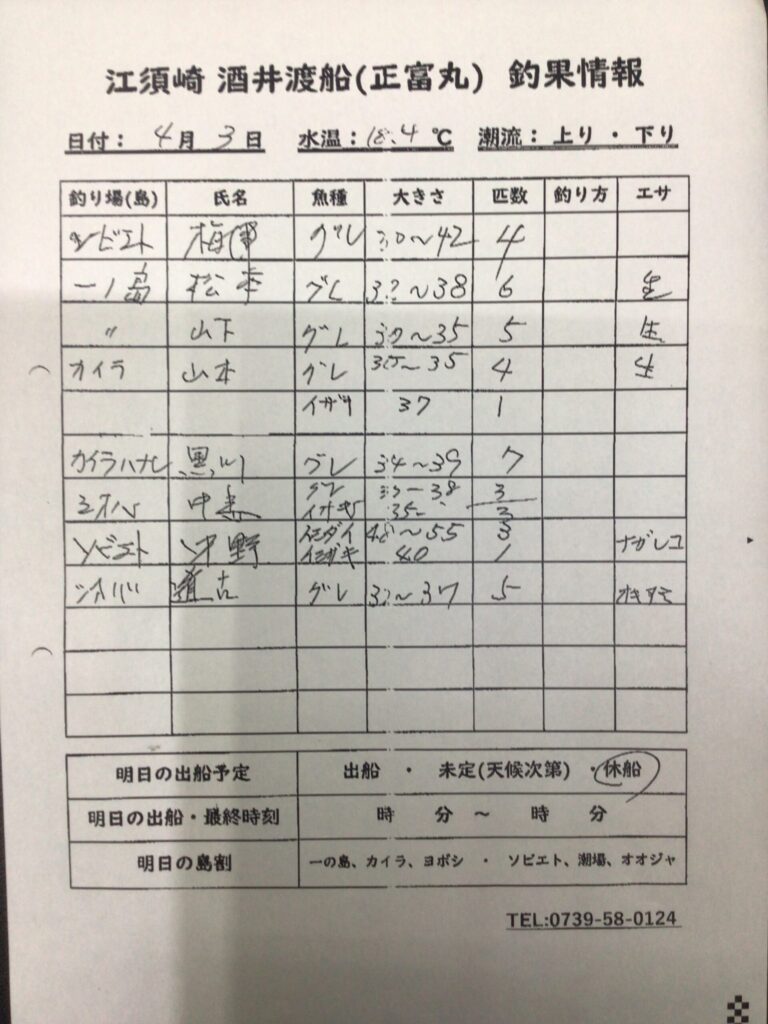 江須崎 酒井渡船(正富丸) 釣果情報
日付： 4月 3日 水温：18.4 ℃ 潮流：上り・下り
釣り場(島) 氏名 魚種 大きさ 匹数 釣り方 エサ
ソビエト 梅澤 グレ 30～42 4
一ノ島 松本 グレ 32～38 6 生
〃 山下 グレ 30～35 5 生
カイラ 山本 グレ ～35 4 生
イガミ 37 1
カイラハナレ 黒川 グレ 34～39 7
グレ ～38 3
中 イサギ 35
ソビエト 野 イシダイ 48～55 3 ナガレコ
イシガキ 40 1
グレ 32～37 5 オキアミ
明日の出船予定 出船 ・ 未定(天候次第) ・ 休船
明日の出船・最終時刻 時 分 ～ 時 分
明日の島割 一の島、カイラ、ヨボシ ・ ソビエト、潮場、オオジャ
TEL:0739-58-0124